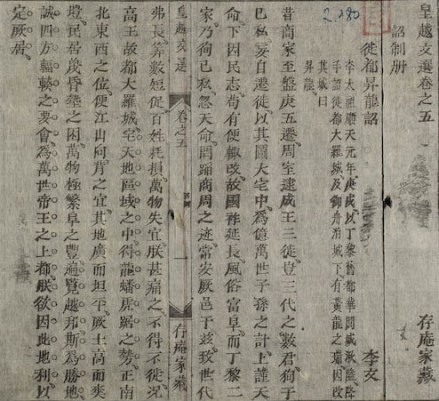 2.280
皇越文選卷之五 存庵家藏
詔制册
徙都昇龍詔 李文
李太祖順天元年庚戌以丁黎舊都華閭城湫隘降
手詔徙都大羅城及御舟泊城下有黃龍之瑞因改
其城曰
昇龍
昔商家至盤庚五遷周室逮成王三徙豈三代之數君徇于
己私妄自遷徙以其圖大宅中為億萬世子孫之計上謹天
命下因民志苟有便輒改故國祚延長風俗富阜而丁黎二
家乃徇己私忽天命罔蹈商周之迹常安厥邑于茲致世代
皇越文選 卷之五 一 存庵家藏
弗長算數短促百姓耗損萬物失宜朕甚痛之不得不徙況
高王故都大羅城宅天地區域之中得龍蟠虎踞之勢正南
北東西之位便江山向背之宜其地廣而坦平厥土高而爽
塏民居蔑昏墊之困萬物極繁阜之豐遍覽越邦斯為勝地
誠四方輻輳之要會為萬世帝王之上都朕欲因此地利以
定厥居